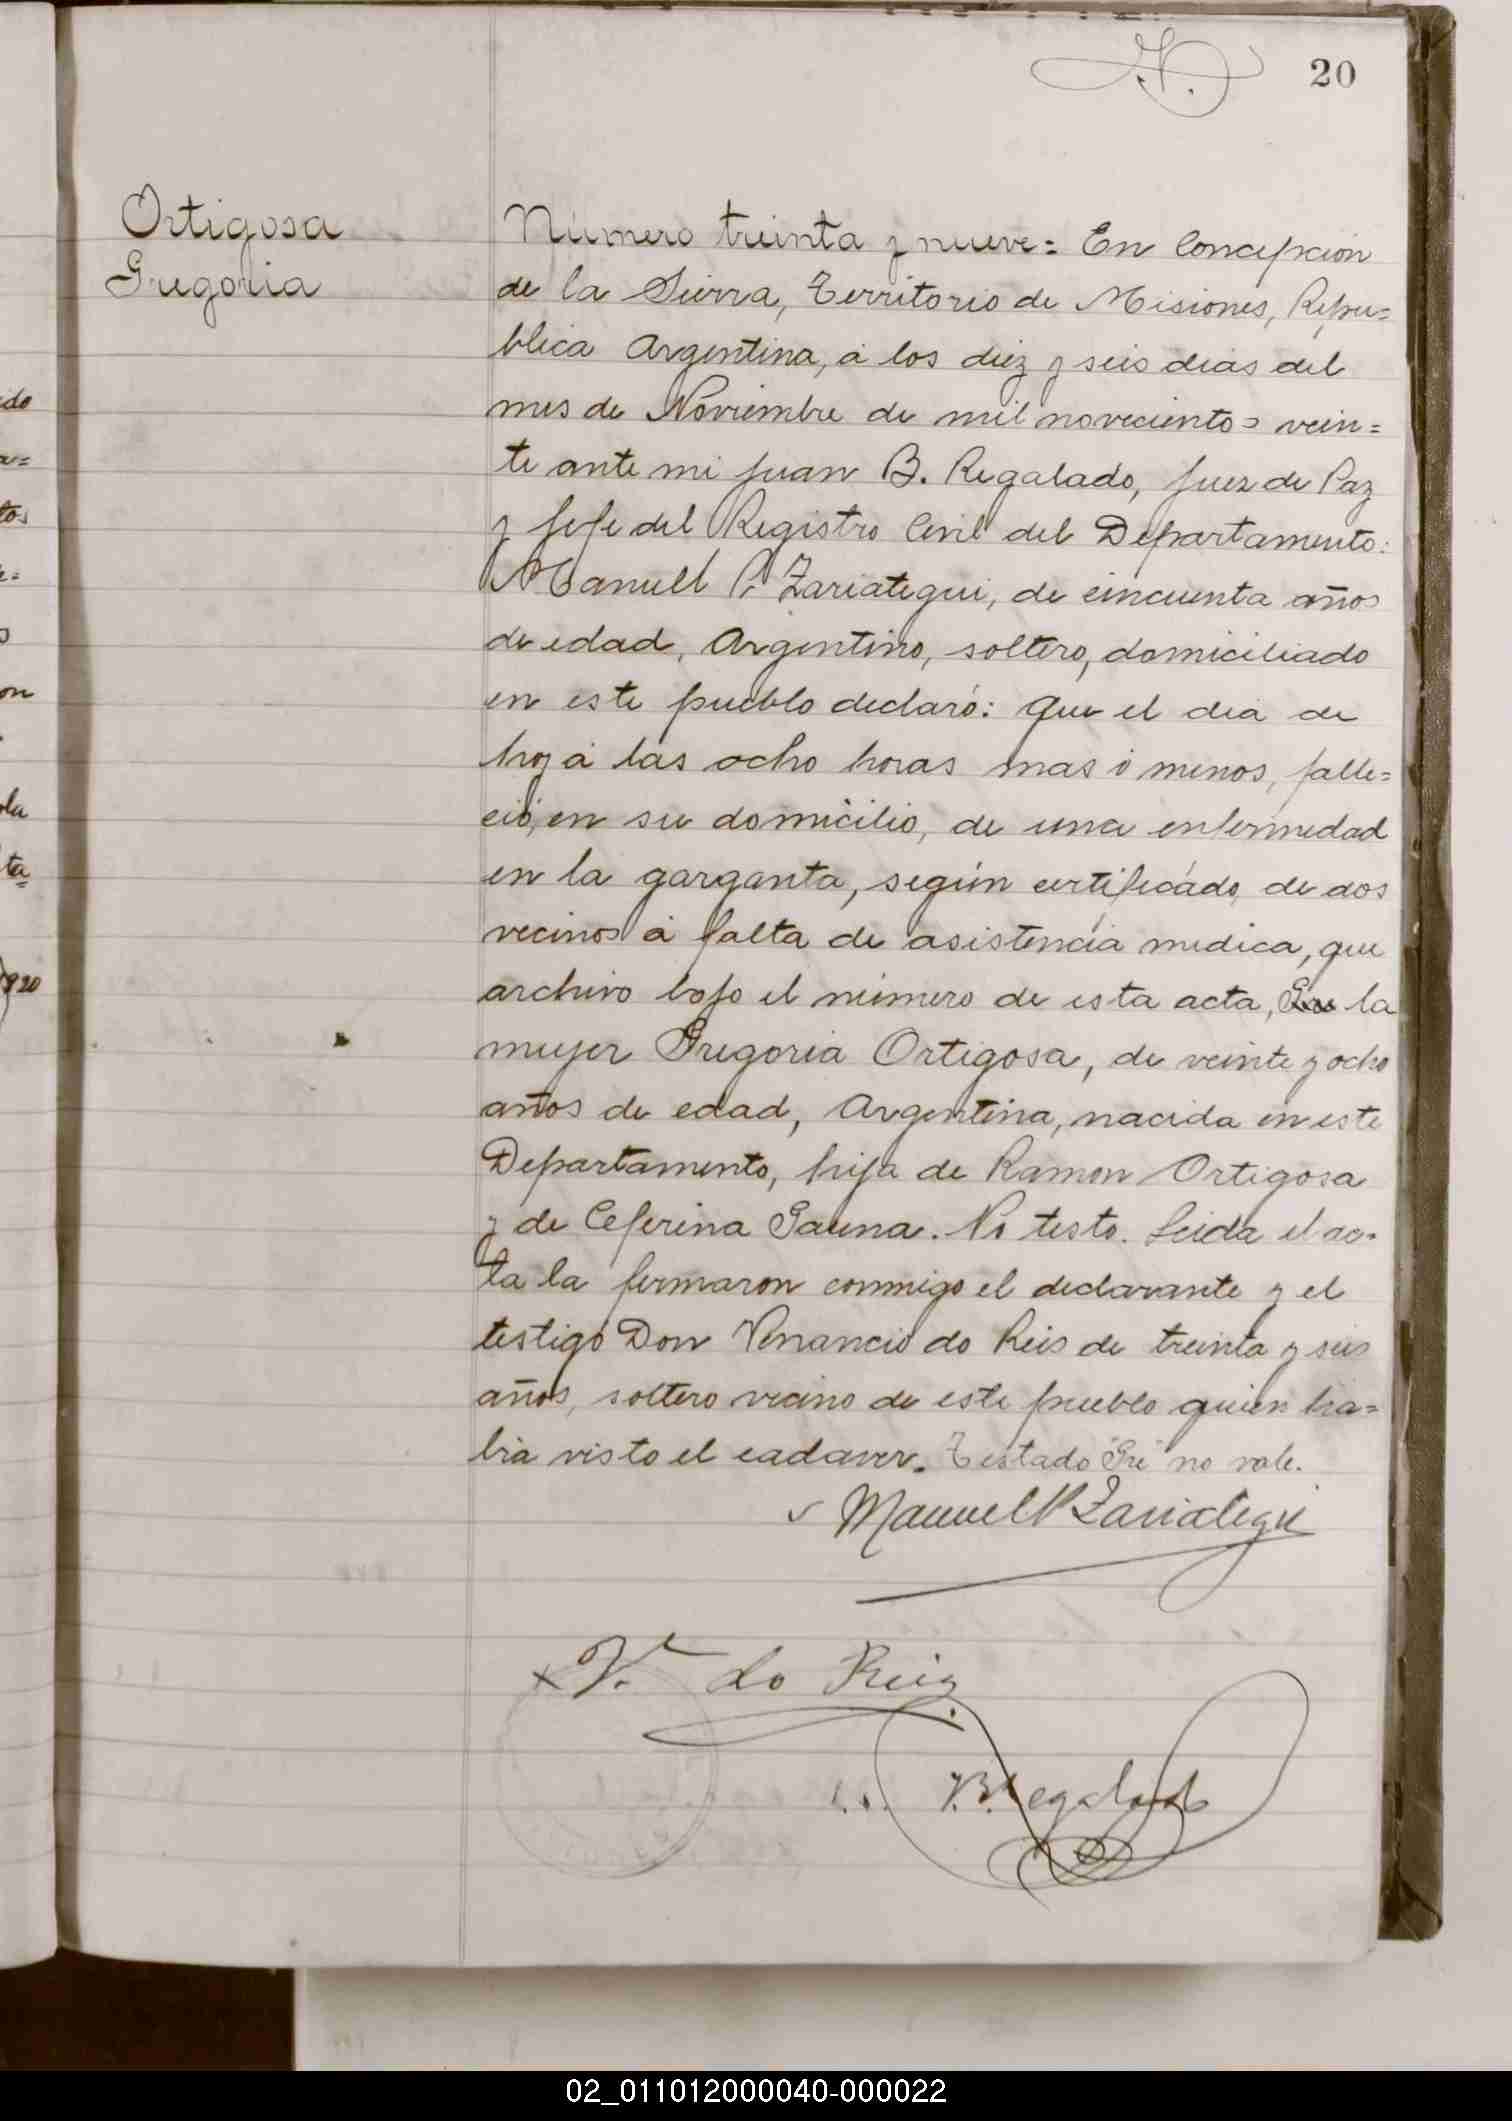 20
Ortigosa
Gregoria
Número treinta y nueve= En Concepcion
de la Sierra, Territorio de Misiones, Repu=
blica Argentina, á los diez y seis dias del
mes de Noviembre de mil novecientos vein=
te ante mi Juan B. Regalado, Juez de Paz
y Jefe del Registro Civil del Departamento:
Manuel P. Zariategui, de cincuenta años
de edad, Argentino, soltero, domiciliado
en este pueblo declaró: que el dia de
hoy á las ocho horas mas ó menos, falle=
ció, en su domicilio, de una enfermedad
en la garganta, según certificado, de dos
vecinos á falta de asistencia medica, que
archivo bajo el número de esta acta, la
mujer Gregoria Ortigosa, de veinte y ocho
años de edad, Argentina, nacida en este
Departamento, hija de Ramon Ortigosa
y de Ceferina Gauna. No testo. Leida el ac=
ta la firmaron conmigo el declarante y el
testigo Don Venancio do Reis de treinta y seis
años, soltero vecino de este pueblo quien ha=
bia visto el cadaver. Testado "Gre" no vale.
Manuel P Zariategui
V. do Reis
J.B. Regalado
ido
a=
tos
e=
on
la
ta=
920
02_011012000040-000022